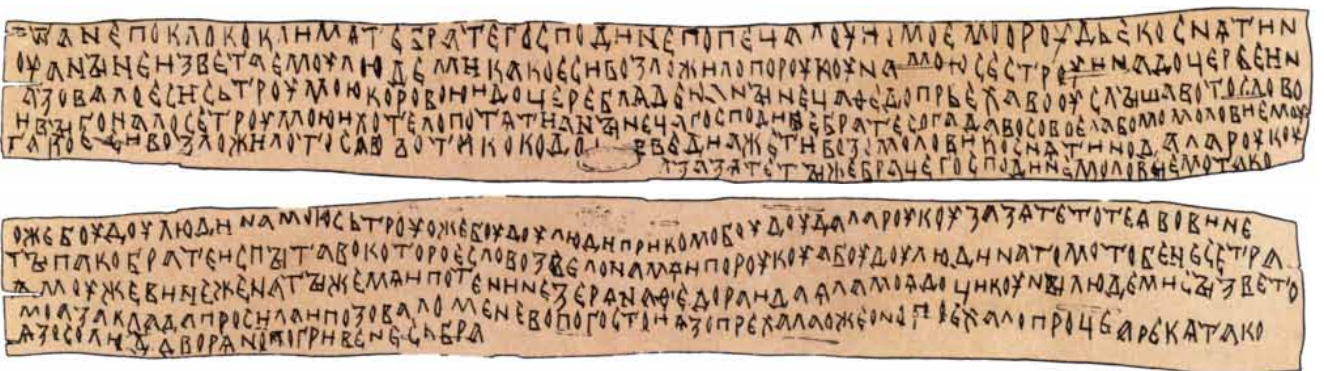 ѾАНЕПОКЛОКОКЛИМѦТЕБРАТЕГОСПОДИНЕПОПЕЧАЛОУИ:МОЕМООРОУДЬЕКОСНѦТИН
ОУАНЫНЕИЗВЕТАЕМОУЛЮДЕМИКАКОЕСИВОЗЛОЖИЛОПОРОУКОУНАМОЮСЕСТРОУИНАДОЧЕРЕЕИН
АЗОВАЛОЕСИСЬТРОУМОЮКОРОВОЮИДОЧЕРЕБЛѦДЕЮАНЫНЕЧАѲЕДОПРЬЕХАВООУСЛЫШАВОТОСЛОВО
ИВЫГОНАЛОСЕТРОУМОЮИХОТЕЛОПОТѦТИАНЫНЕЧАГОСПОДИНЕБРАТЕСОГАДАВОСОВОЕЛАВОМОМОЛОВИЕМОУ
ТАКОЕСИВОЗЛОЖИЛОТОСЛОВОТИКОКОДОВЕДИАЖЕТИВОЗЕМОЛОВИКОСНѦТИНОДАЛАРОУКОУ
ЗАЗѦТЕТЫЖЕБРАЧЕГОСПОДИНЕМОЛОВИЕМОТАКО
ОЖЕБОУДОУЛЮДИНАМОЮСЬТРОУОЖЕБОУДОУЛЮДИПРИКОМОБОУДОУДАЛАРОУКОУЗАЗѦТЕТОТЕѦВОВИНЕ
ТЫПАКОБРАТЕИСПЫТАВОКОТОРОЕСЛОВОЗВЕЛОНАМѦИПОРОУКОУАБОУДОУЛЮДИНАТОМОТОБЕНЕСЕТРА
АМОУЖЕВИНЕЖЕНАТЫЖЕМѦИПОТЕНИНЕЗЕРѦНАѲЕДОРАИДАѦЛАМОѦДОЧИКОУНЫЛЮДЕМИСЫЗВЕТО
МОАЗАКЛАДАПРОСИЛАИПОЗОВАЛОМЕНЕВОПОГОСТОИѦЗОПРЕХАЛАОЖЕОНОПОЕХАЛОПРОЧЕАРЕКѦТАКО
ѦЗОСОЛЮДДВОРѦНОПОГРИВЕНЕСЬБРА